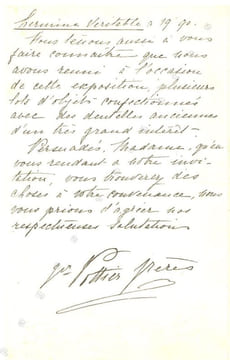 Hermine Véritable à 19 90.
Nous tenons aussi à vous
faire connaître que nous
avons réuni à l'occasion
de cette exposition, plusieurs
lots d'objets confectionnés
avec des dentelles anciennes
d'un très grand intérêt.
Persuadés, Madame, qu'en
vous rendant à notre invi-
tation, vous trouverez des
choses à votre convenance, nous
vous prions d'agréer nos
respectueuses salutations
Pottier frères